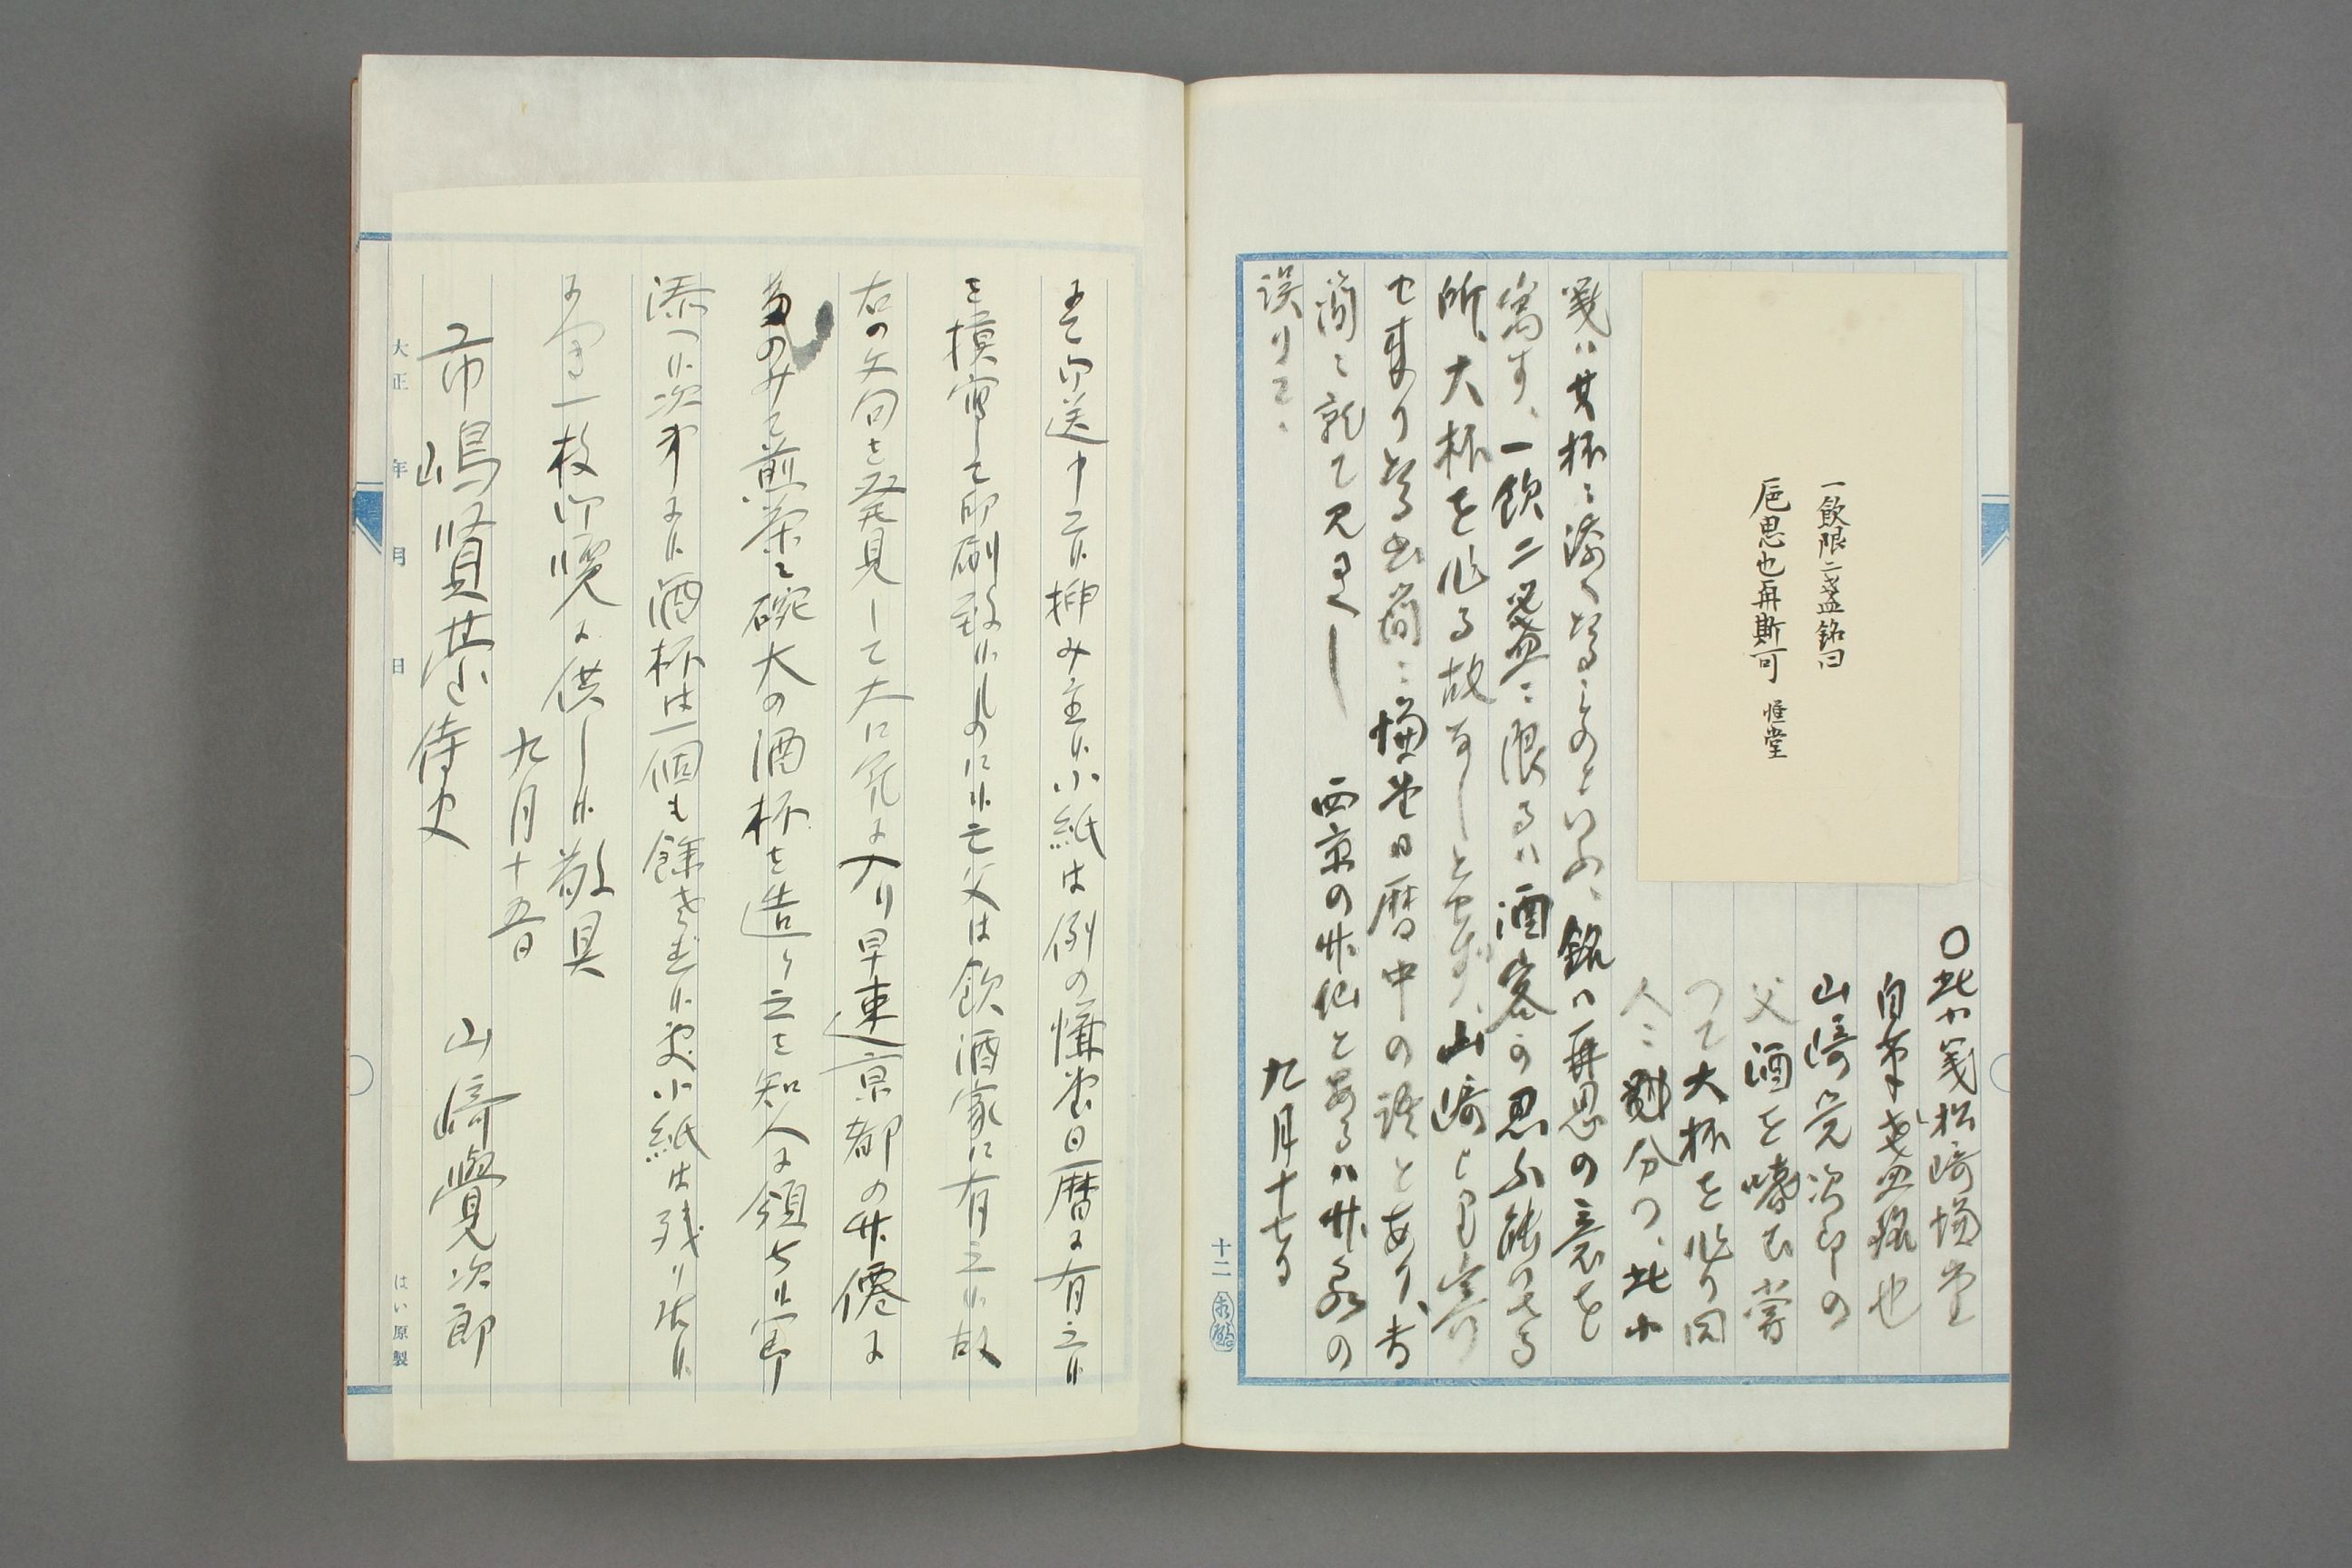 一飲限二盞銘曰
巵思也再斯可 慊堂
〇此小箋松崎慊堂
自筆盞銘也
山崎覚次郎の
父酒を嗜む嘗
つて大杯を作り同
人に頒分つ、此小
箋ハ其杯に添へたるものといふ、銘ハ再思の意を
寓す、一飲二盞に限るハ酒客の忍ふ能はさる
所、大杯を作る故なしとせす、山崎氏より寄
せ来りたる書簡に慊堂日暦中の語とあり、書
簡に就て見るへし 西京の竹仙とあるハ竹泉の
誤りと、
九月十七日
十二
まて御送申上候挿み主候小紙は例の慊堂日暦に有之候
を摸写して印刷致候ものに候亡父は飲酒家に有之候故
右の文句を発見して大に気に入り早速京都の竹僊に
たのみて煎茶々碗大の酒杯を造らせ之を知人に領ち候節
添へ候次第に候酒杯は一個も餘さず候処小紙は残り居候
まゝ一枚御慢に供し候 敬具
九月十五日
山崎覺次郎
市嶋賢臺 侍史
大正 年 月 日
はい原製